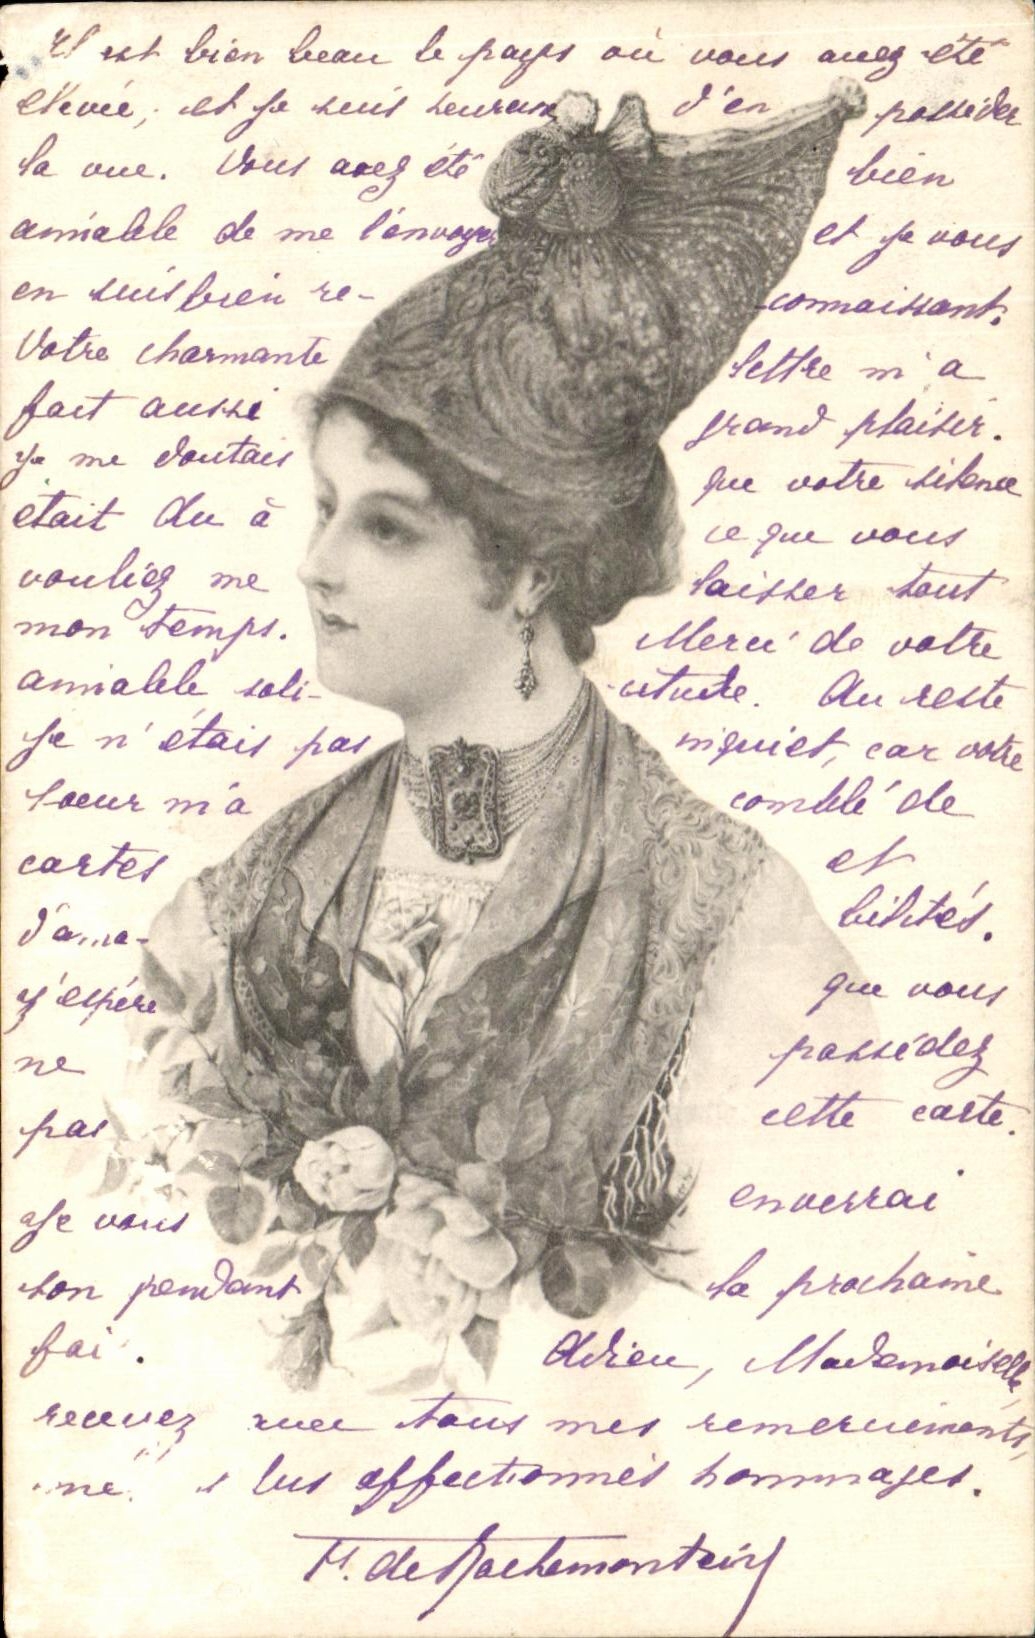 Il est bien beau le pays où vous avez été
élevée, et je suis heureux d'en posséder
la vue. Vous avez été bien
aimable de me l'envoyer et je vous
en suis bien re- -connaissant.
Votre charmante lettre m'a
fait aussi grand plaisir.
Je me doutais que votre silence
était du à ce que vous
vouliez me laisser tout
mon temps. Merci de votre
aimable soli- -citude. Du reste
je n'étais pas inquiet, car votre
soeur m'a comblé de
cartes et
d'ama- bilités.
J'espère que vous
ne possédez
pas cette carte.
Je vous enverrai
son pendant la prochaine
foi. Adieu, Mademoiselle,
recevez avec tous mes remerciements,
mes plus affectionnés hommages.
H. de Rochemonteix